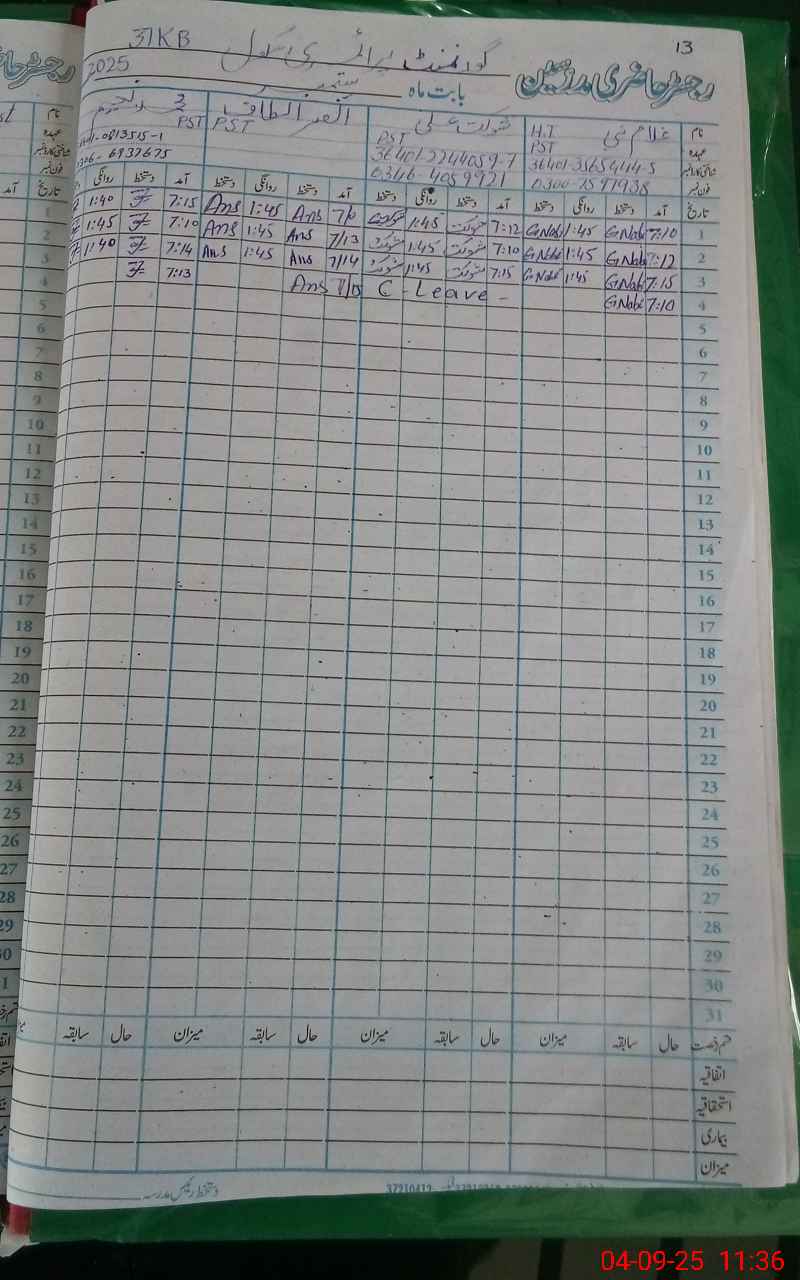 13
37KB گورنمنٹ پرائمری سکول
رجسٹر حاضری مدرسین
بابت ماہ ستمبر 2025
نام غلام نبی شوکت علی
عہدہ H.T PST PST PST PST
36401-3565444-5 36401-2244059-7
فون نمبر 0346-4059921
تاریخ آمد دستخط روانگی دستخط آمد دستخط روانگی دستخط آمد دستخط روانگی دستخط آمد دستخط روانگی
1 7:10 GNabi 1:45 GNabi 7:12 شوکت 1:45 شوکت Ans 1:45 Ans 7:15 1:40
2 7:12 GNabi 1:45 GNabi 7:10 شوکت 1:45 شوکت 7/13 Ans 1:45 Ans 7:10 1:45
3 7:15 GNabi 1:45 GNabi 7:15 شوکت 1:45 شوکت 7/14 Ans 1:45 Ans 7:14 1:40
4 7:10 GNabi C - Leave - Ans 7:13
5
6
7
8
9
10
11
12
13
14
15
16
17
18
19
20
21
22
23
24
25
26
27
28
29
30
31
قسم رخصت حال سابقہ میزان حال سابقہ میزان حال سابقہ میزان حال سابقہ
اتفاقیہ
استحقاقیہ
بیماری
میزان
دستخط رئیس مدرسہ
04-09-25 11:36